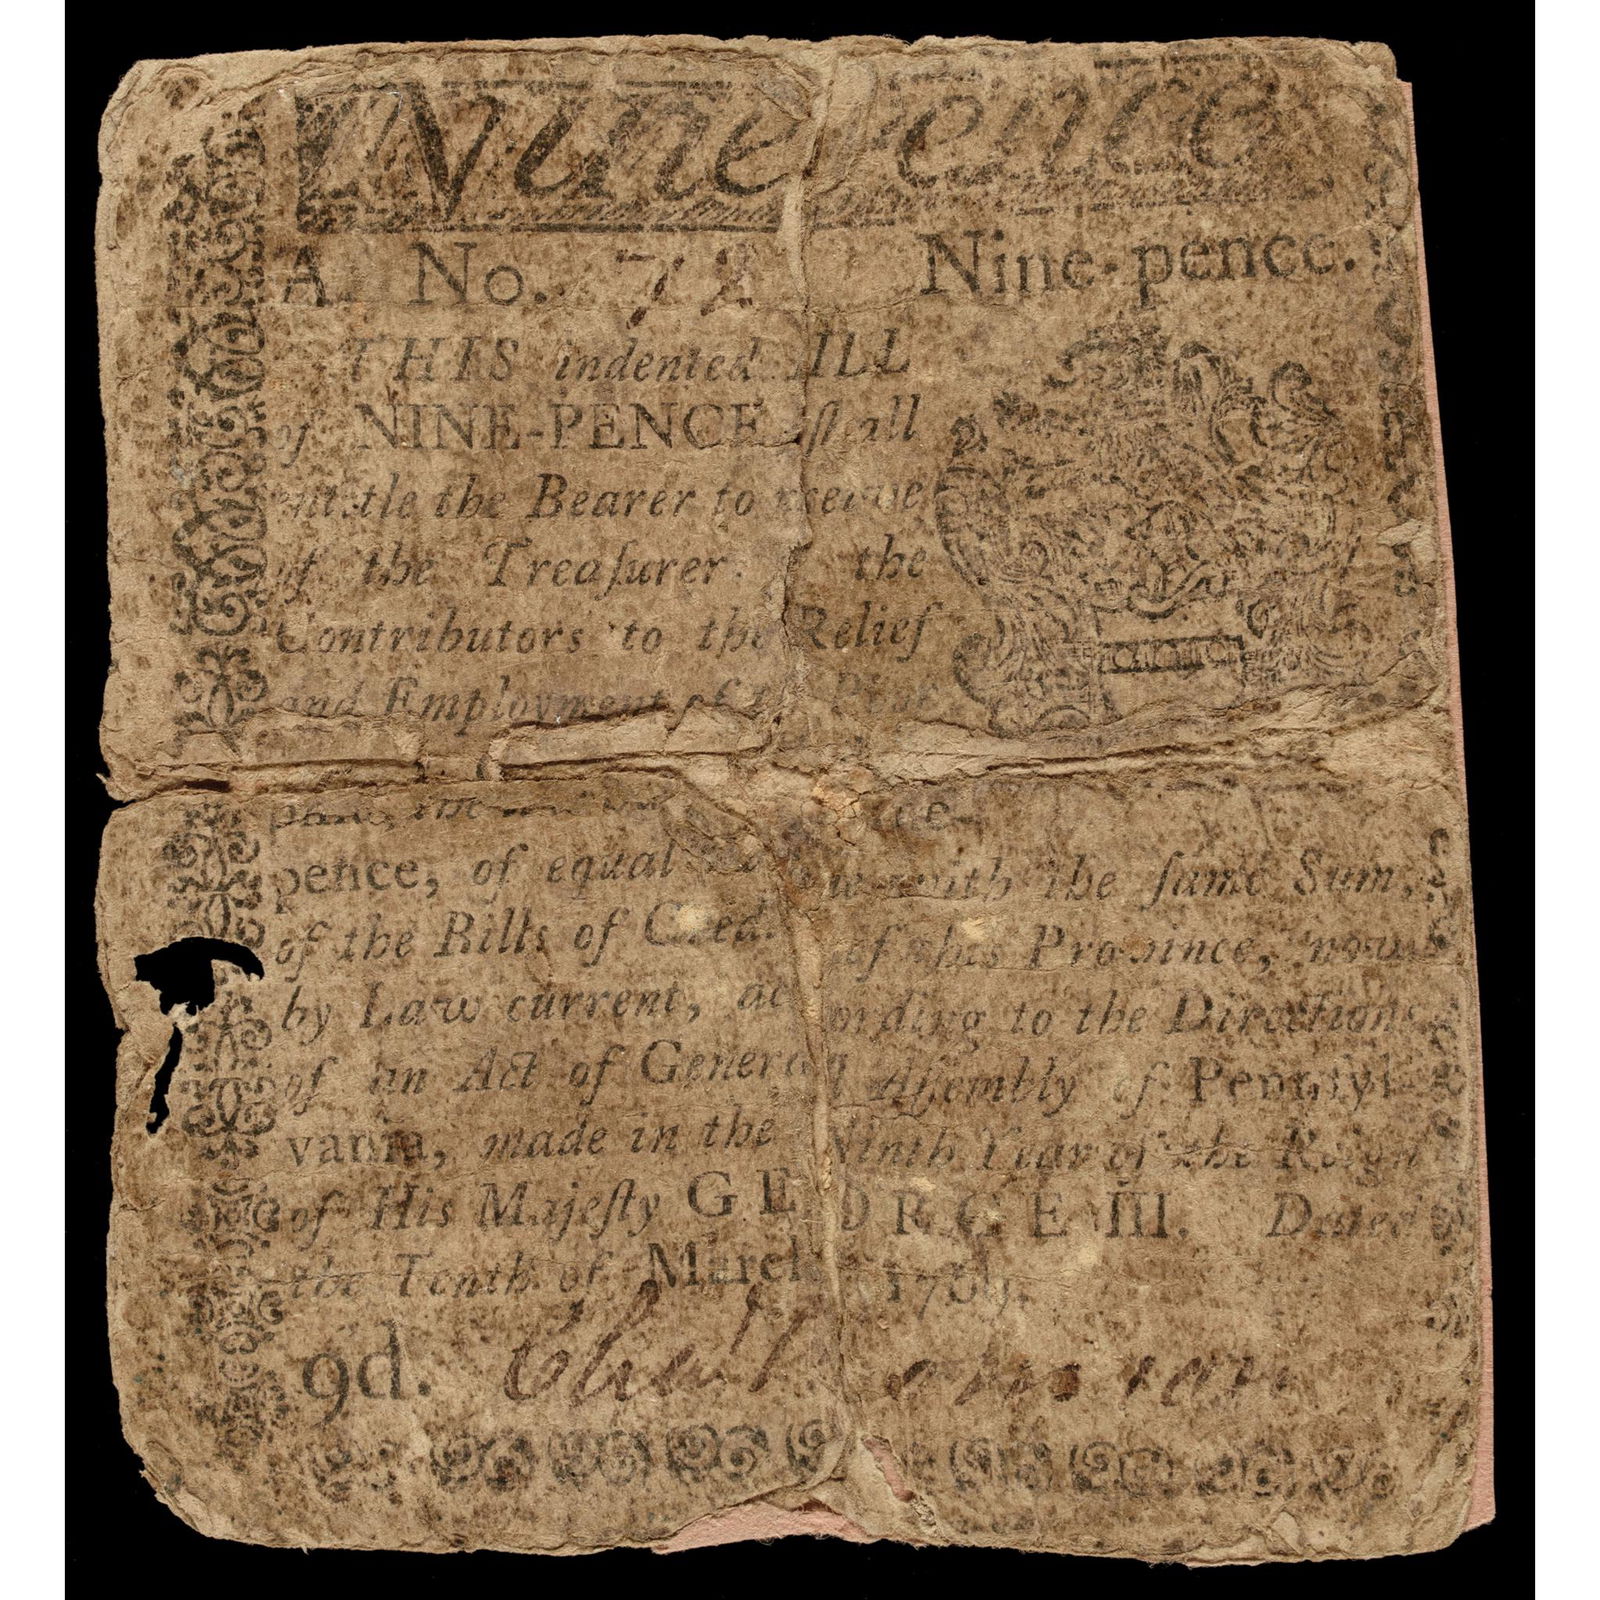 Nine ence
A No. 72 Nine-pence.
THIS indented ILL
of NINE-PENCE ſhall
entitle the Bearer to receive
of the Treaſurer the
Contributors to the Relief
and Employment of
pence, of equal with the ſame Sum,
of the Bills of Cred. of this Province, now
by Law current, ac ording to the Directions
of an Act of General Aſſembly of Pennſyl-
vania, made in the Ninth Year of the Reign
of His Majeſty GEORGE III. Dated
the Tenth of March 1769.
9d.